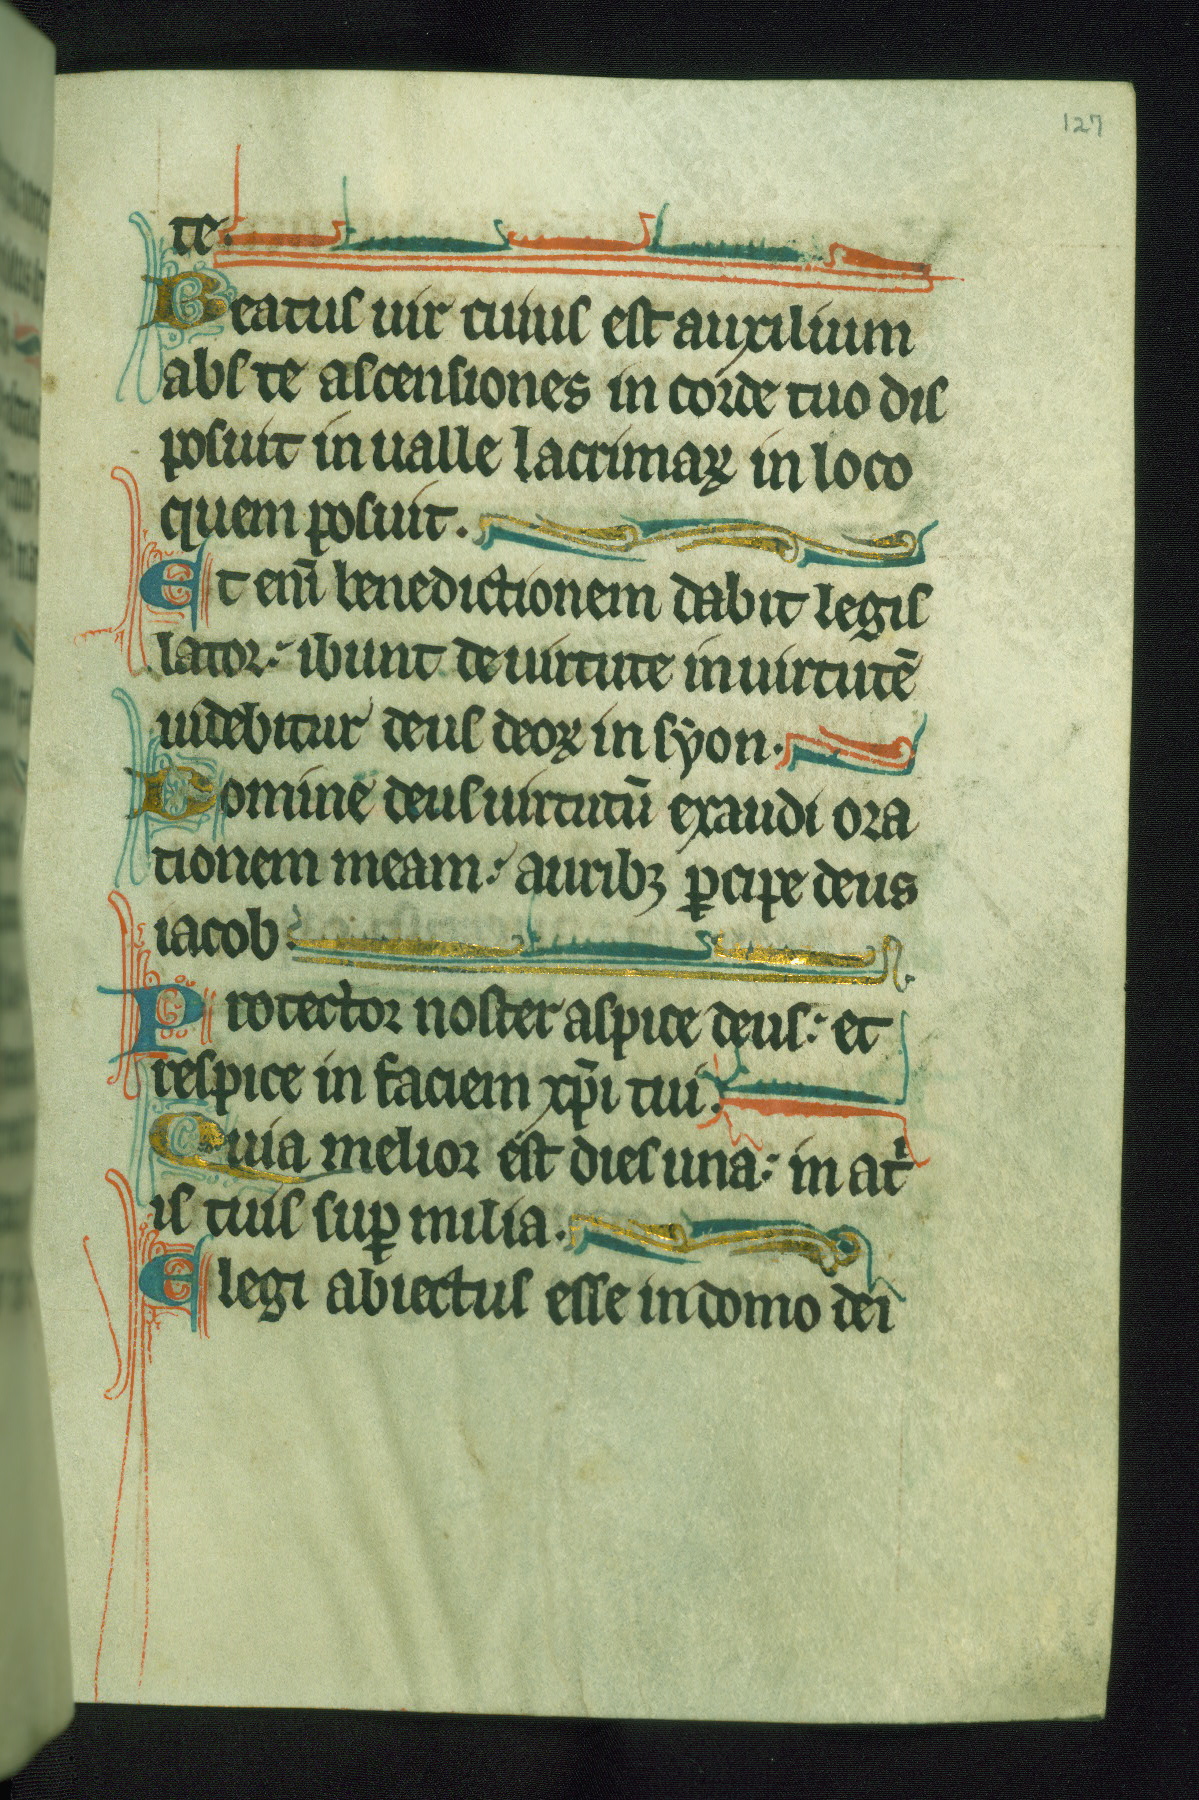 127
te.
Beatus uir cuius est auxilium
abs te ascensiones in corde tuo dis
posuit in ualle lacrimaꝝ in loco
quem posuit.
Et eni̅ benedictionem dabit legis
lator: ibunt de uirtute in uirtute̅
uidebitur deus deoꝝ in sẏon.
Domine deus uirtutu̅ exaudi ora
tionem meam: auribꝫ ꝑcipe deus
iacob.
Protector noster aspice deus: et
respice in faciem xp̅i tui.
Quia melior est dies una: in atͥ
is tuis suꝑ milia.
Elegi abiectus esse in domo dei